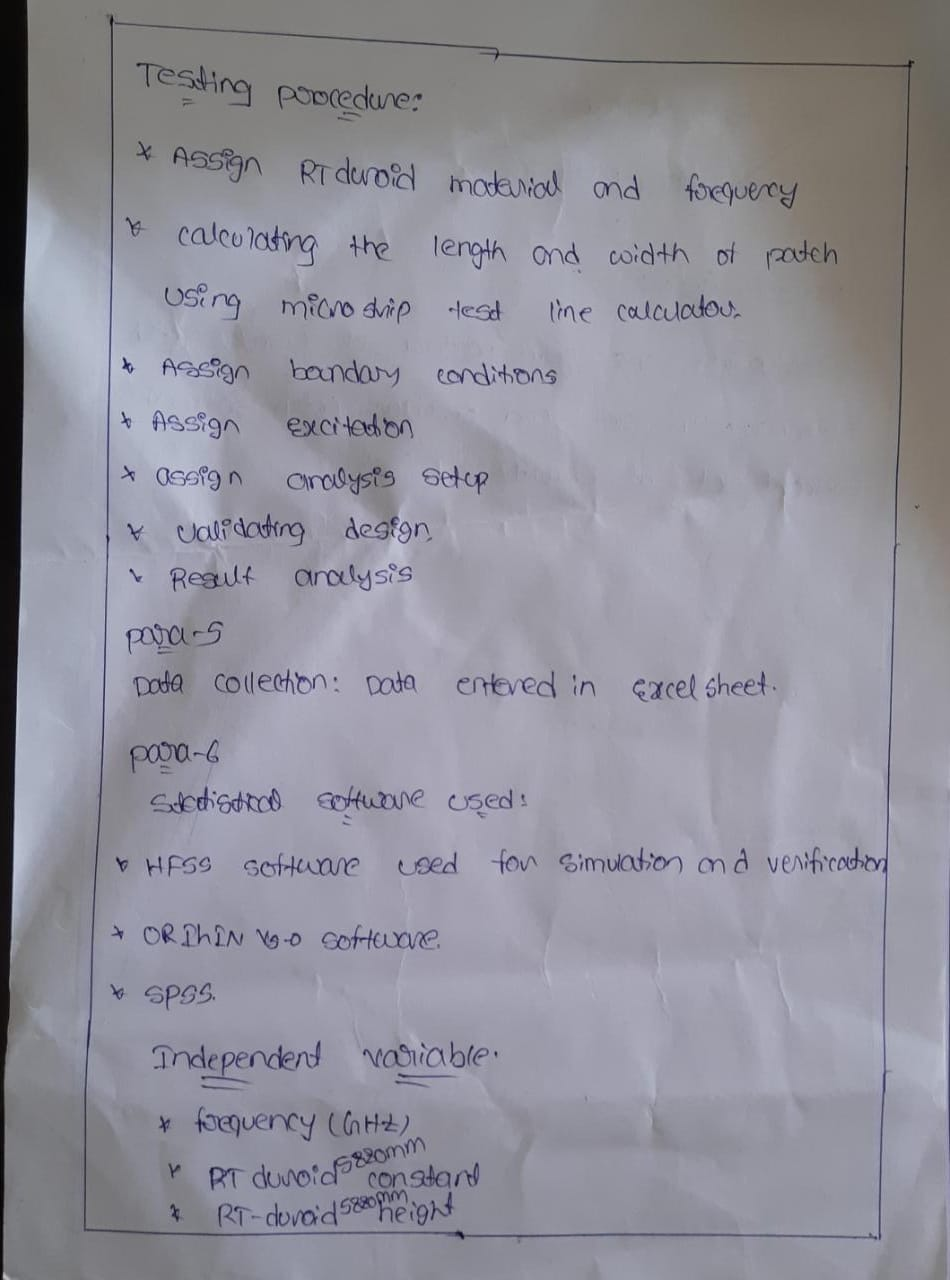 Testing poocedure:
* Assign RT duroid material and foequency
* calculating the length and width of patch
using microstrip test line calculator.
* Assign boundary conditions
* Assign excitation
* assign analysis setup
* validating design.
* Result analysis
para-5
Data collection: Data entered in Excel sheet.
para-6
Statistical software used:
* HFSS software used for simulation and verification
* ORIhIN software.
* SPSS.
Independent variable.
* foequency (GHz)
* RT duroid 5880mm constant
* RT-duroid 5880mm height